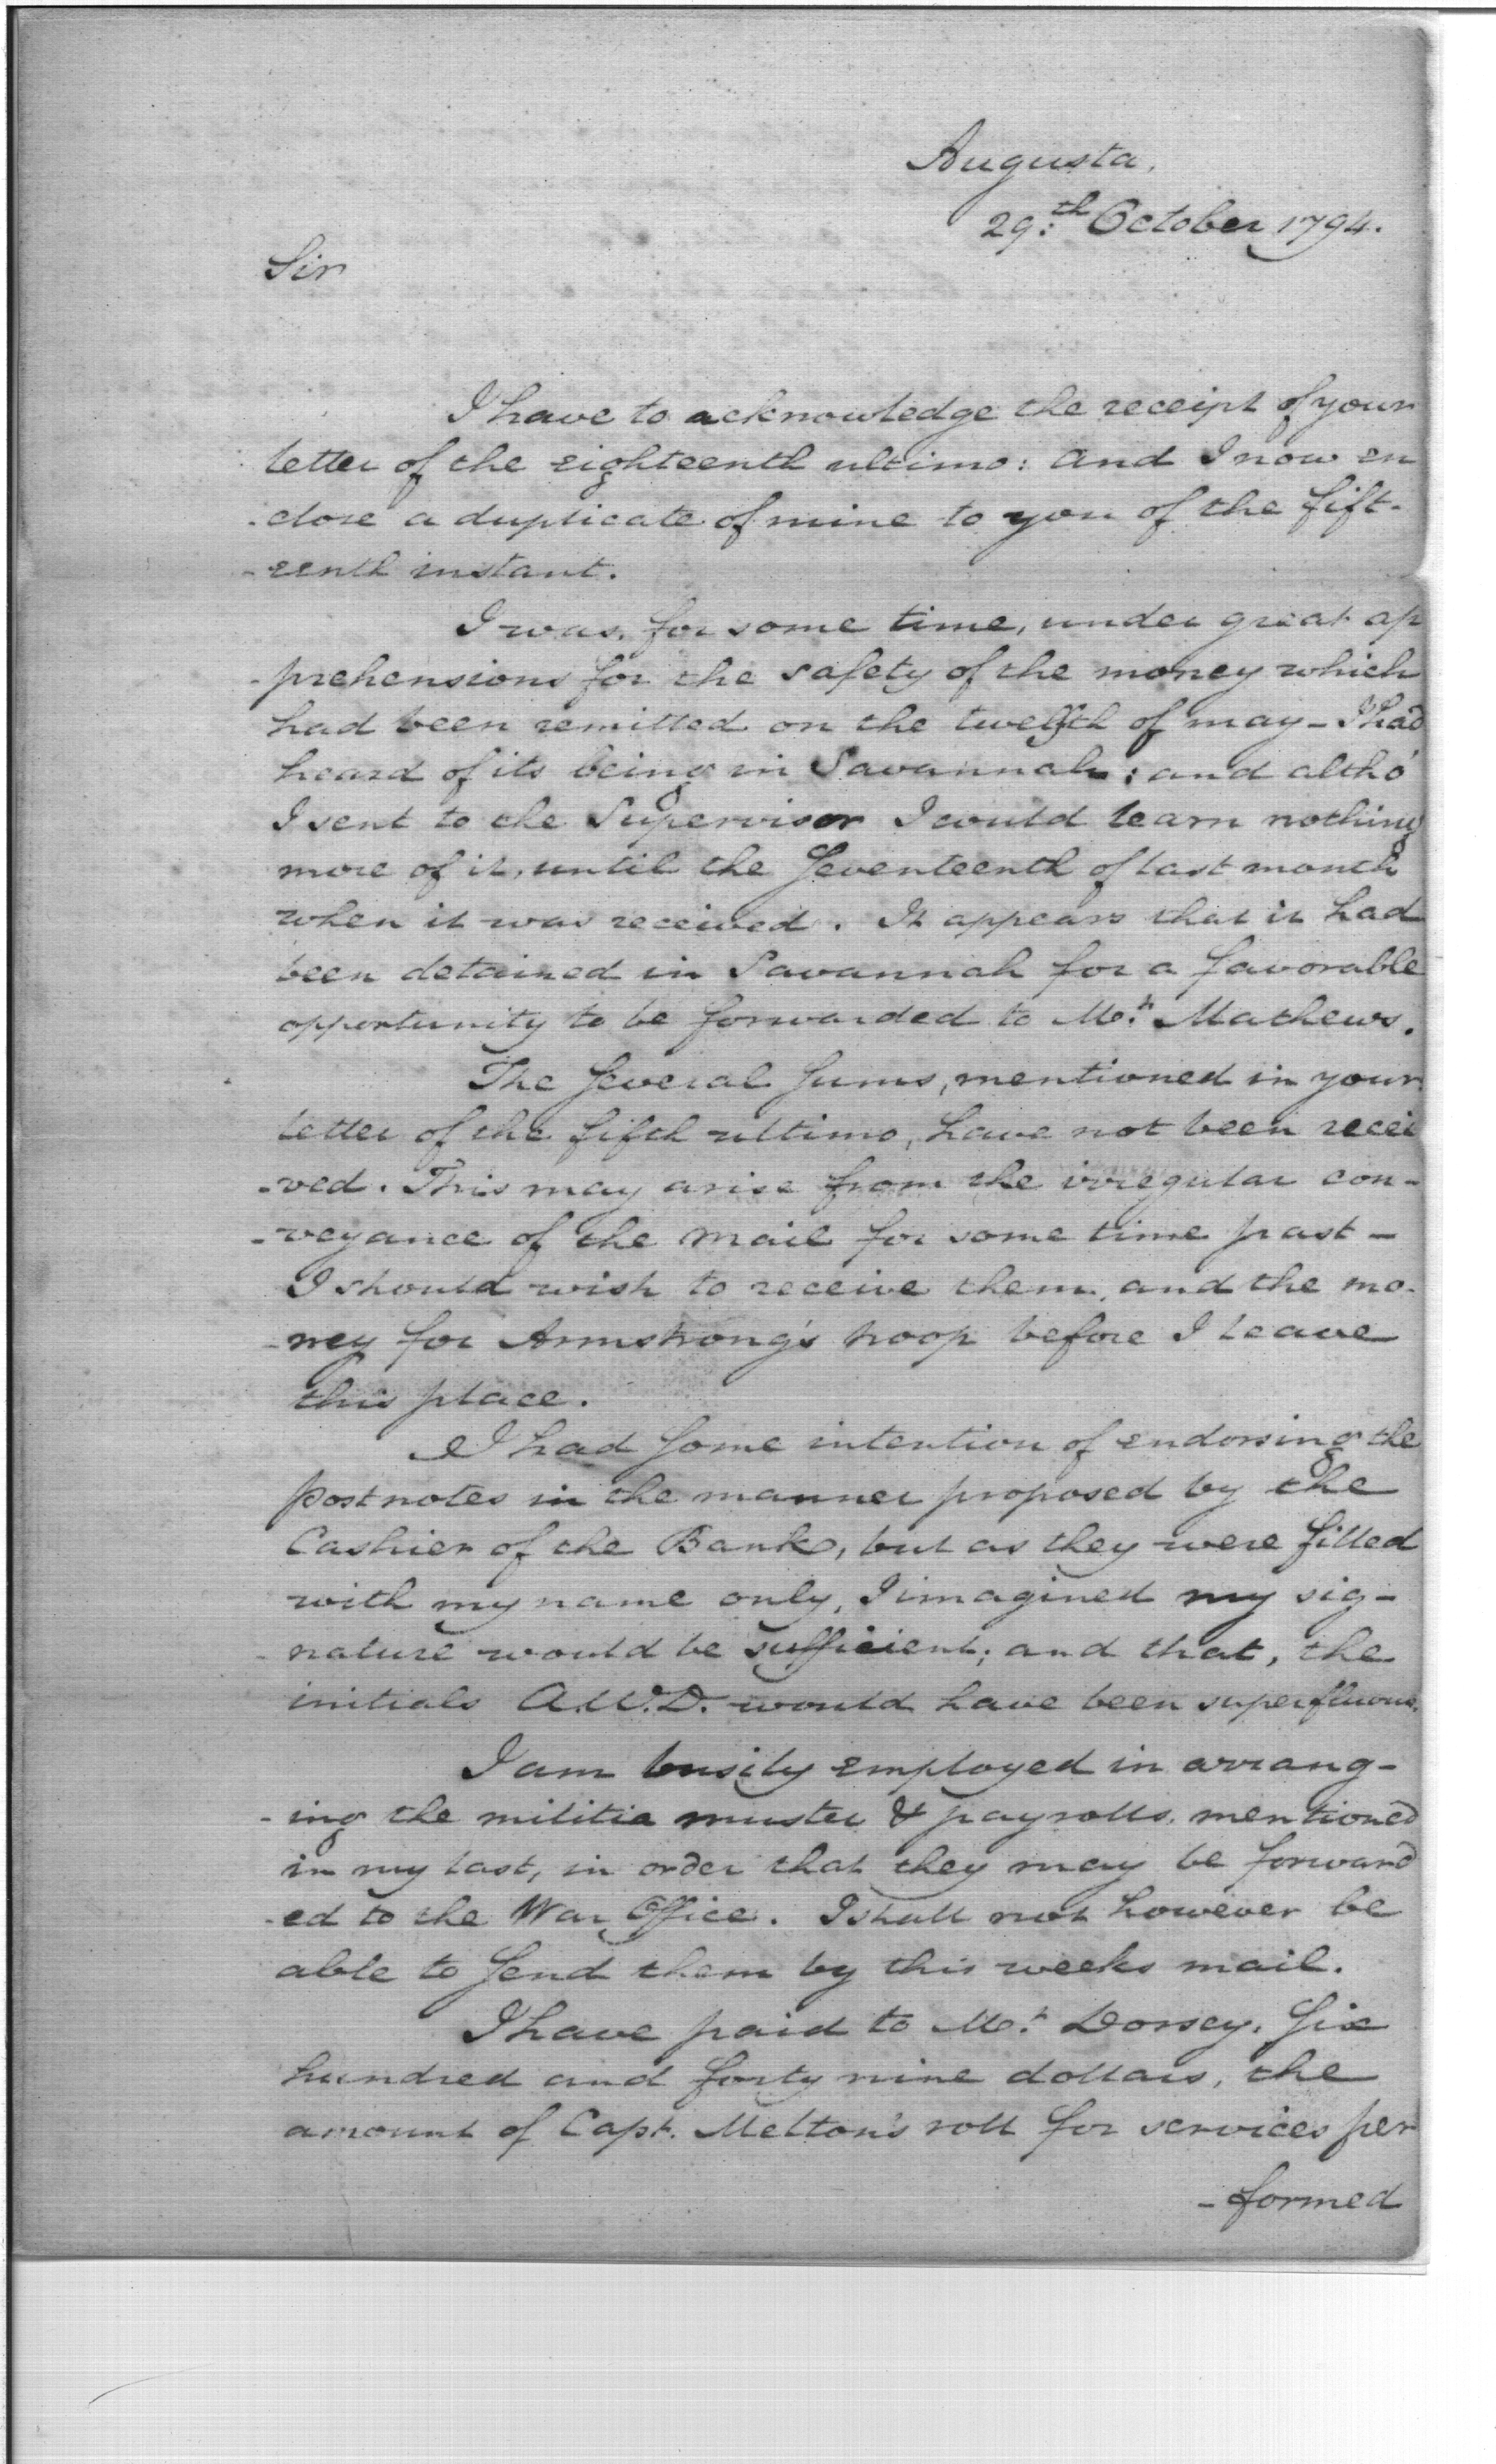 Augusta,
29.th October 1794.
Sir
I have to acknowledge the receipt of your
letter of the eighteenth ultimo: and I now en
-close a duplicate of mine to you of the fift-
-eenth instant.
I was, for some time, under great ap
-prehensions for the safety of the money which
had been remitted on the twelfth of may - I had
heard of its being in Savannah; and altho'
I sent to the Supervisor I could learn nothing
more of it, until the Seventeenth of last month
when it was received. It appears that it had
been detained in Savannah for a favorable
opportunity to be forwarded to Mr. Mathews.
The Several Sums, mentioned in your
letter of the fifth ultimo, have not been recei
-ved. This may arise from the irregular con-
-veyance of the mail for some time past -
I should wish to receive them, and the mo-
-ney for Armstrong's troop before I leave
this place.
I had Some intention of endorsing the
post notes in the manner proposed by the
Cashier of the Bank, but as they were filled
with my name only, I imagined my sig-
-nature would be sufficient; and that, the
initials A.W.D. would have been superfluous.
I am busily employed in arrang-
-ing the militia muster & payrolls, mentioned
in my last, in order that they may be forward
-ed to the War Office. I shall not however be
able to Send them by this weeks mail.
I have paid to Mr. Dorsey, Six
hundred and forty nine dollars, the
amount of Capt. Melton's roll for services per
-formed